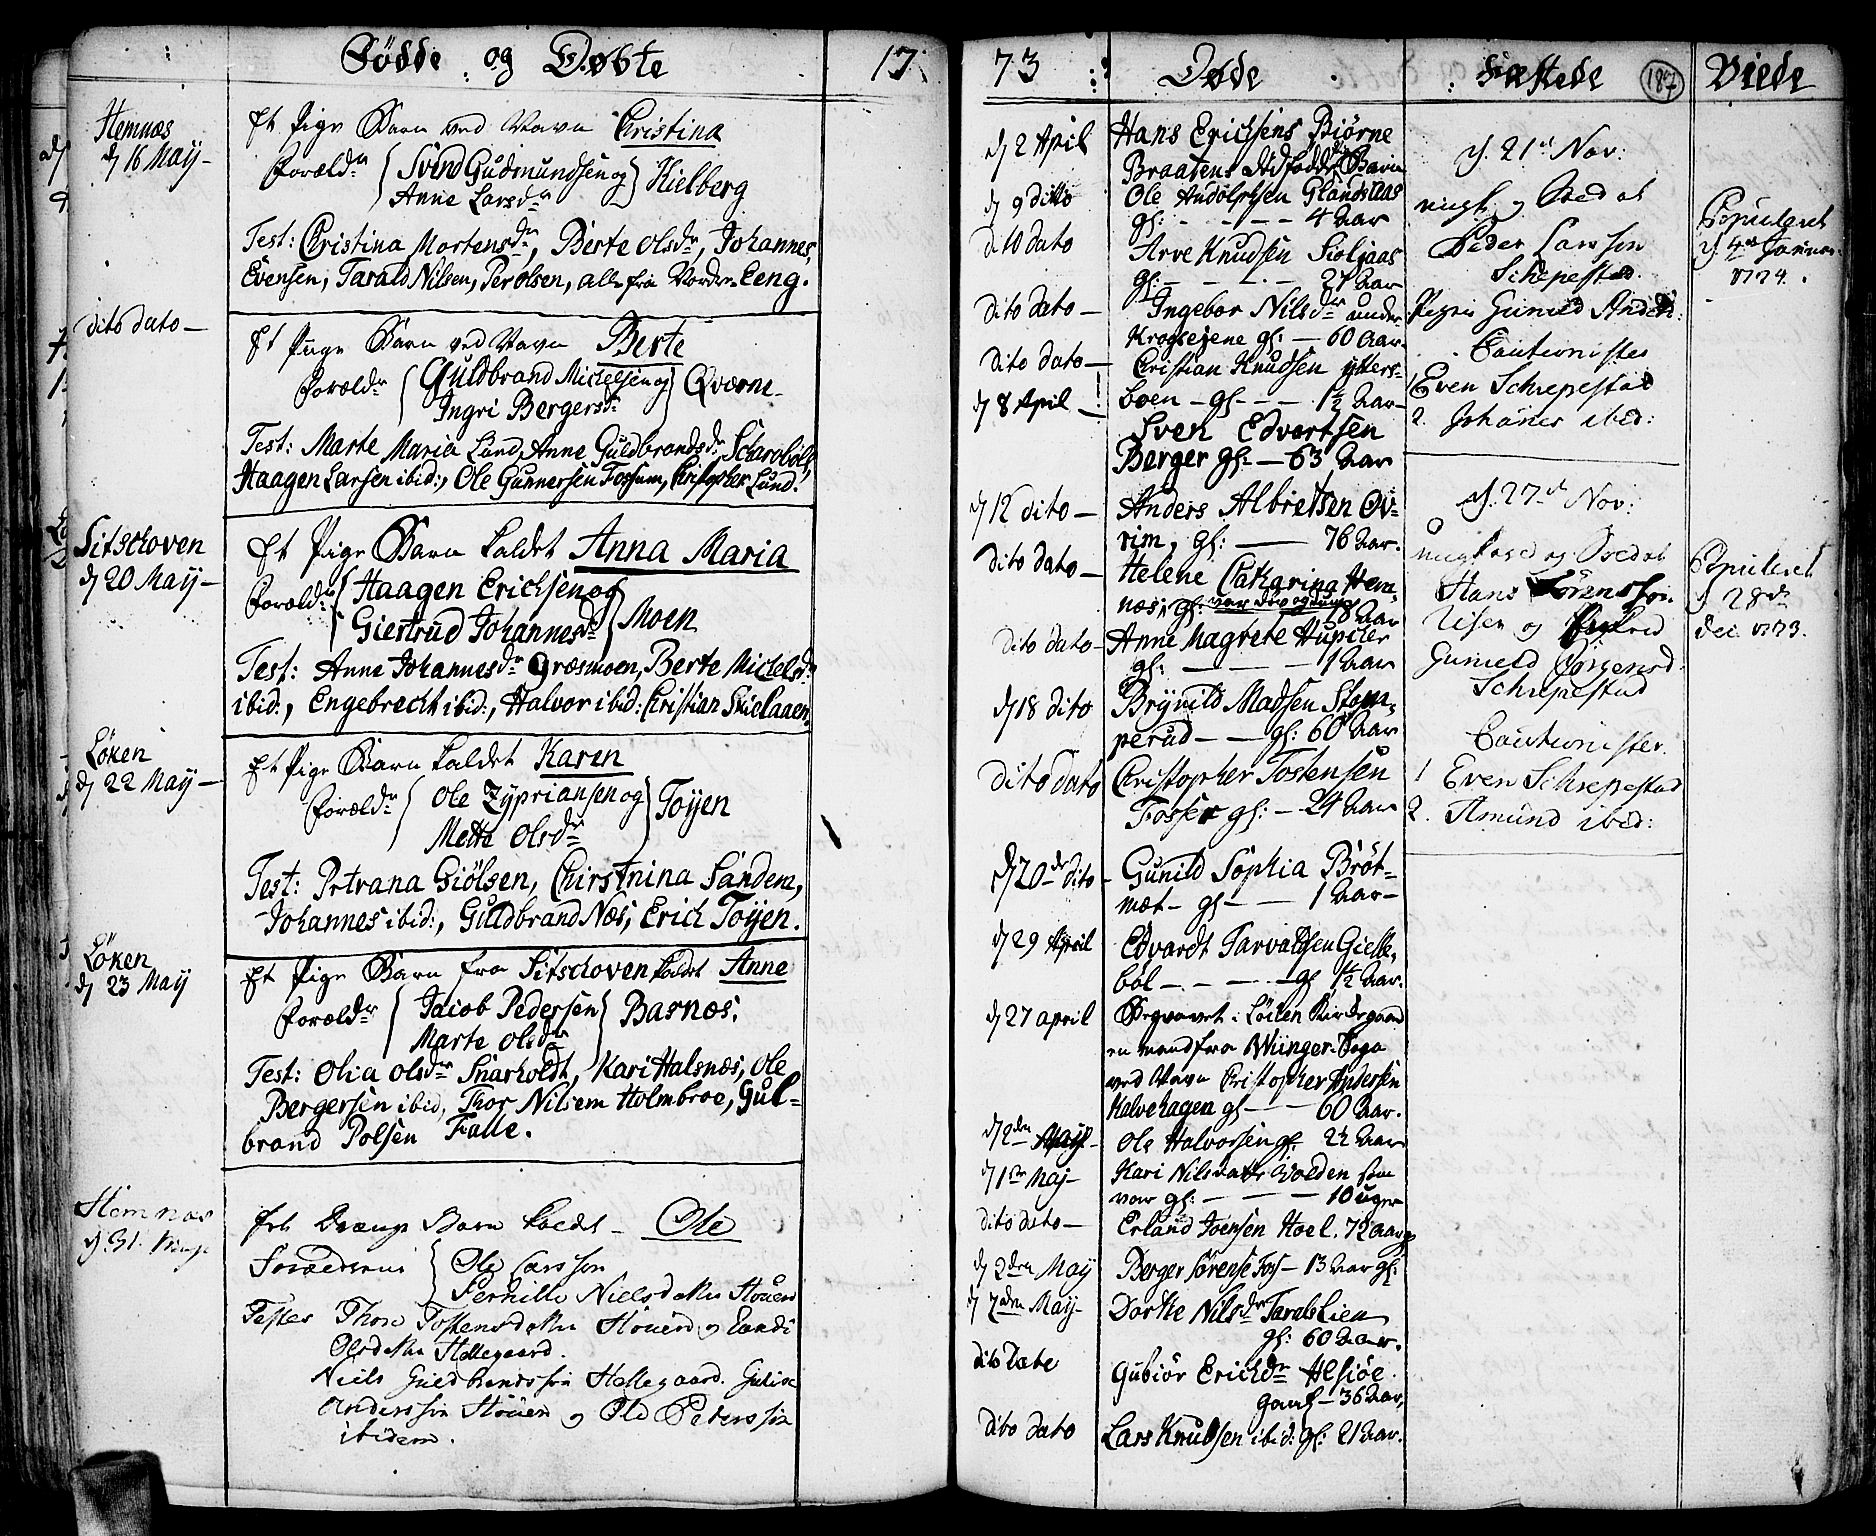 Fødde og Døbte 17
Hemnæs
d 16 May
Et Pige Barn ved Navn Christina
Foræld. Svend Gudmundsen og
Anne Larsdr Kielberg
Test: Christina Mortensdr, Berte Olsdr, Johannes
Evensen, Tarald Nilsen, Per Olsen, alle fra Nordre Eeng.
dito dato
Et Pige Barn ved Navn Berte
Foræld. Guldbrand Michelsen og
Ingri Bergersdr Qværne
Test: Marte Maria Lund, Anne Guldbrandsdr
Haagen Larsen ibid:, Ole Gunnersen Fossum, Christopher Lund.
Sitschoven
d 20 May
Et Pige Barn kaldet Anna Maria
Foræld. Haagen Erichsen og
Giertrud Johannesdr Moen
Test: Anne Johannesdr Græsmoen, Berte Michelsdr
ibid:, Engebrecht ibid:, Halvor ibid: Christian Skielaaen.
Løken
d 22 May
Et Pige Barn kaldet Karen
Foræld. Ole Zypriansen og
Mette Olsdr Toÿen
Test: Petrana Giölsen, Chirstnina Sandem,
Johannes ibid:, Guldbrand Næs, Erich Toÿen.
Løken
d 23 May
Et Pige Barn fra Sitschoven kaldet Anne
Foræld. Jacob Pedersen
Marte Olsdr Basnæs.
Test: Olia Olsdr Snarholdt, Kari Halsnæs, Ole
Bergersen ibid, Thor Nilsen Holmbroe, Gul-
brand Polsen Falle.
Hemnæs
d. 31. May
Et Drenge Barn kaldt Ole
Forældrene Ole Larssøn
Pernille Nielsdatter Stouen
Testes Thore Tostensdatter Stouen og Randi
Olsdatter Hellegaard.
Niels Guldbrandssøn Hellegaard.
Anderssøn Stouen og Ole Peterssøn
ibidem.
73 Døde
d 2 April Hans Erichsens Biørne
Braatens dødfødde Barn
d 9 ditto Ole Andolphsen
gl: 4 Aar
dito dato Arve Knudsen
gl: 27 Aar
dito dato Ingebor Nilsdr under
Krogsejene gl: 60 Aar.
dito dato Christian Knudsen ytters-
boen gl 1½ Aar
d 8 April Sven Edvartsen
Berger gl: 63 Aar
d 12 dito Anders Albretsen Ov-
rim, gl: 76 Aar.
dito dato Helene Catharina Hem-
næs, gl: 18 Aar
dito dato Anne Magrete Hupcher
gl: 1 Aar
d 18 dito Brÿnild Madsen Stom-
perud gl: 60 Aar
dito dato Christopher Tostensen
Fosser gl: 24 Aar
d 20de dito Gunild Sophia Bröt-
mæt gl 1 Aar
d 29 April Edvardt Tarvaldsen Gielle-
böl gl 1½ Aar.
d 27 april Begravet i Løken Kirkegaard
en mand fra Winger Sogn
ved Navn Christopher Andersen
Kalvehagen gl 60 Aar.
d 2den May Ole Halvorsen gl 2½ Aar
d 1ste May Kari Nilsdatter Wolden som
var gl: 10 uger
dito dato Erland Joensen Hoel. 72 aar
d 2den May Berger Sörensen Fos 13 Aar gl:
d 7den May Dorthe Nilsdr Taralslien
gl: 60 Aar.
dito Dato Gubiör Erichdr Alsiöe
gaml 36 Aar,
dito dato Lars Knudsen ibid: gl: 21 Aar.
Fæstede 187
d. 21de Nov:
Peder Larssøn
Schrepestad.
Pigen Gunild
Cautionister
1 Even Schrepestad
2. Johannes ibid:
d. 27de Nov:
Hans Sörenssøn
Gunild Jørgensd.
Schrepestad
Cautionister.
1 Even Schrepestad
2. Amund ibid:
Viede
Copuleret
d. 4de Januar
1774.
Copuleret
d 28de
Dec. 1773.